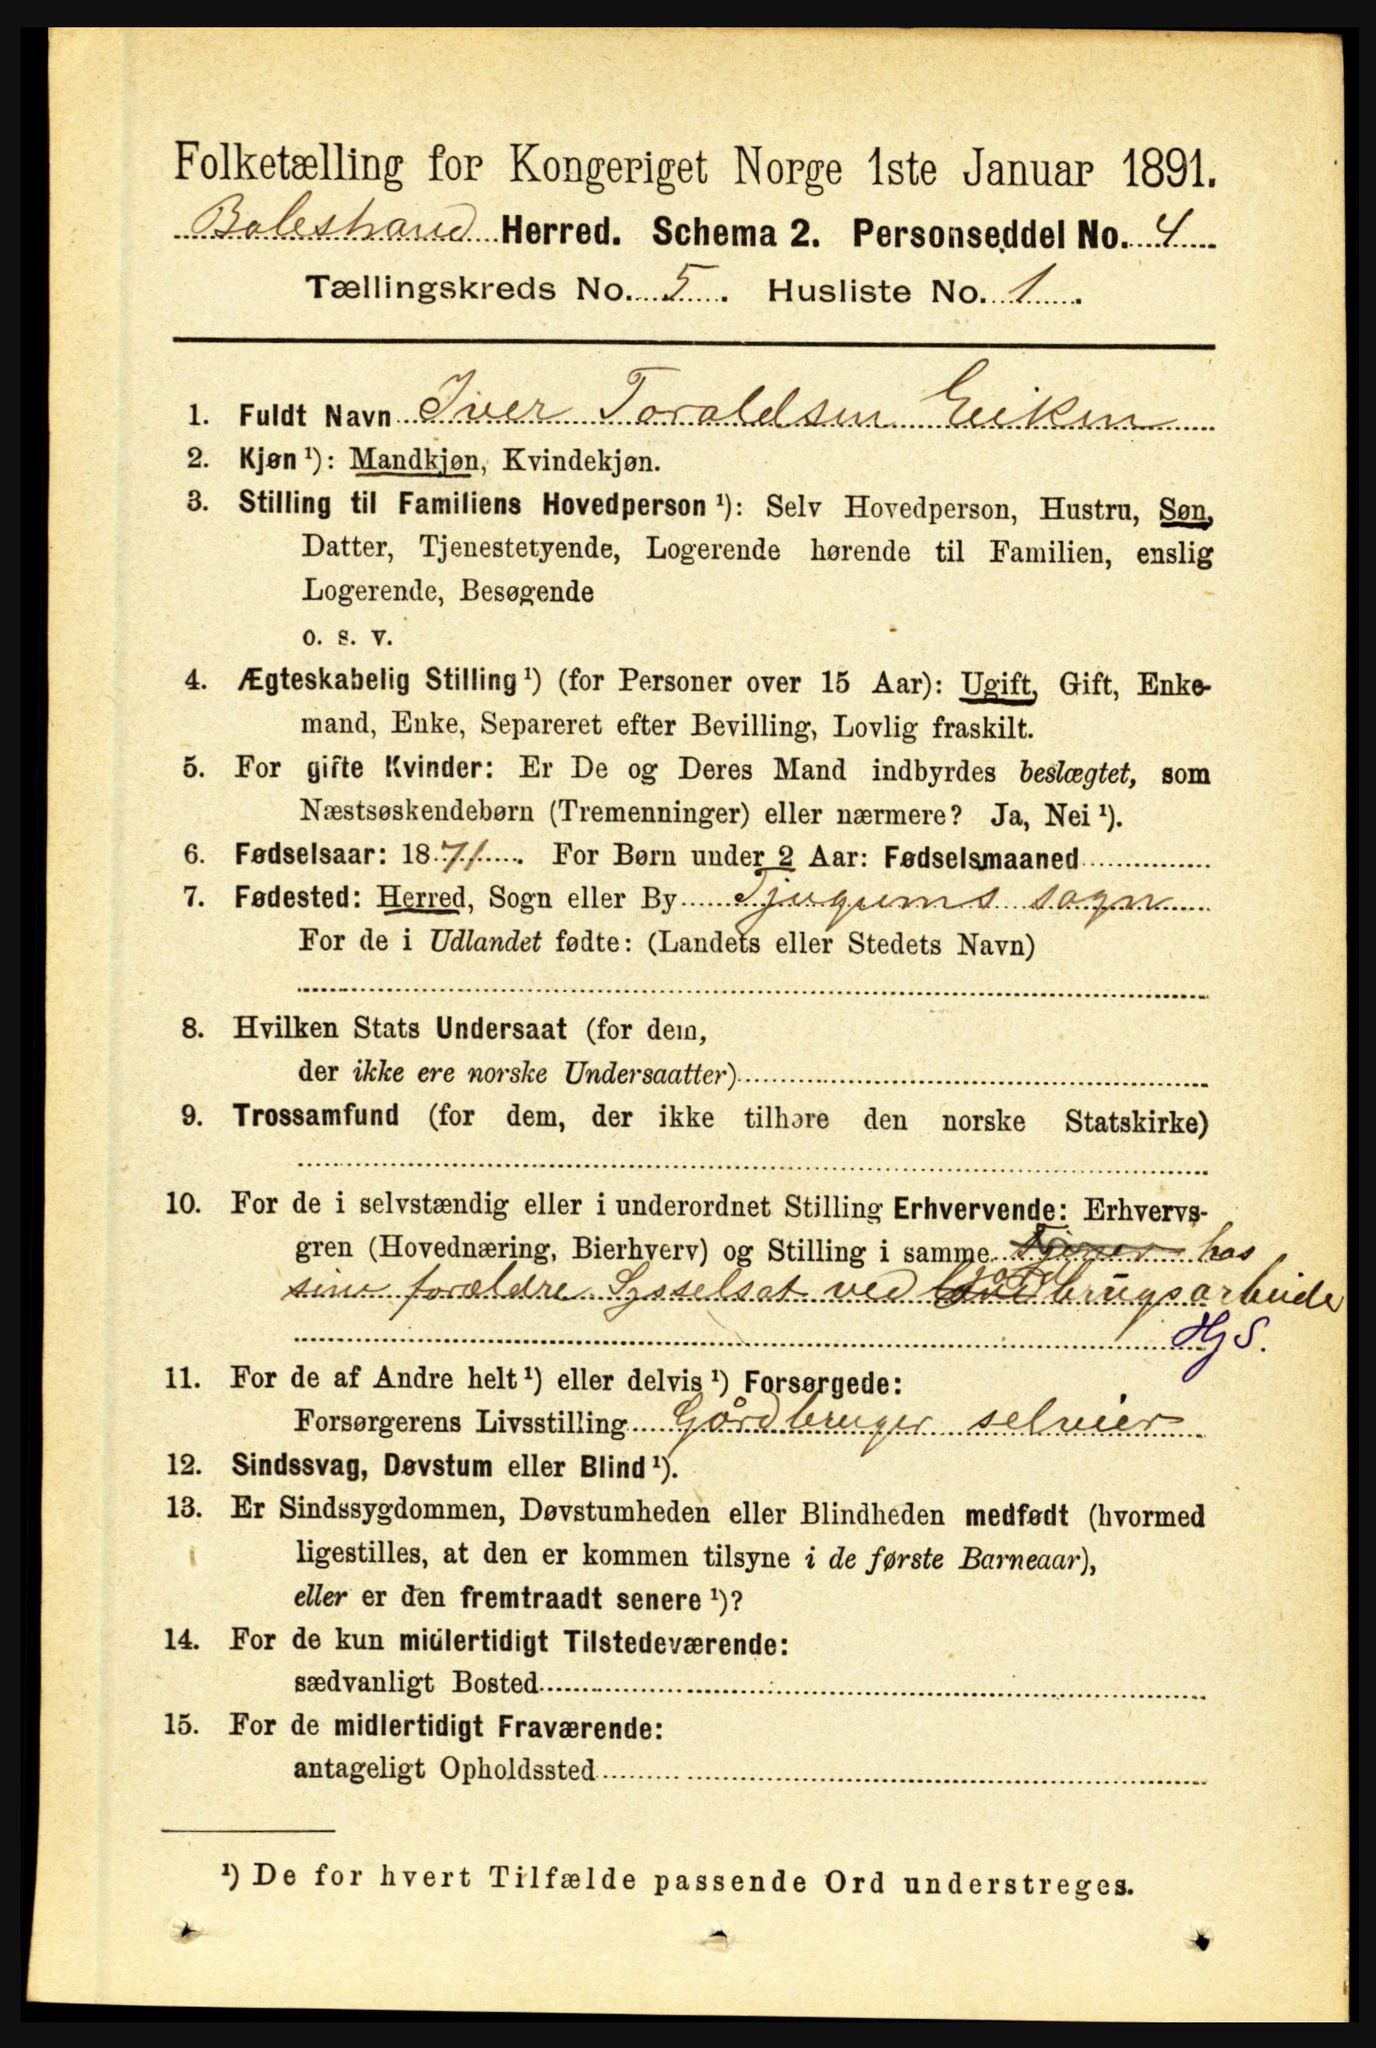 Folketælling for Kongeriget Norge 1ste Januar 1891.
Balestrand Herred. Schema 2. Personseddel No. 4
Tællingskreds No. 5. Husliste No. 1.
1. Fuldt Navn Iver Toraldsen Eiken
2. Kjøn ¹): Mandkjøn, Kvindekjøn.
3. Stilling til Familiens Hovedperson ¹): Selv Hovedperson, Hustru, Søn,
Datter, Tjenestetyende, Logerende hørende til Familien, enslig
Logerende, Besøgende
o. s. v.
4. Ægteskabelig Stilling ¹) (for Personer over 15 Aar): Ugift, Gift, Enke-
mand, Enke, Separeret efter Bevilling, Lovlig fraskilt.
5. For gifte Kvinder: Er De og Deres Mand indbyrdes beslægtet, som
Næstsøskendebørn (Tremenninger) eller nærmere? Ja, Nei ¹).
6. Fødselsaar: 1871. For Børn under 2 Aar: Fødselsmaaned
7. Fødested: Herred, Sogn eller By Tjugums sogn
For de i Udlandet fødte: (Landets eller Stedets Navn)
8. Hvilken Stats Undersaat (for dem,
der ikke ere norske Undersaatter)
9. Trossamfund (for dem, der ikke tilhøre den norske Statskirke)
10. For de i selvstændig eller i underordnet Stilling Erhvervende: Erhvervs-
gren (Hovednæring, Bierhverv) og Stilling i samme Tjener hos
sine forældre Sysselsat ved brugsarbeide
HjS.
11. For de af Andre helt ¹) eller delvis ¹) Forsørgede:
Forsørgerens Livsstilling Gårdbruger selveier
12. Sindssvag, Døvstum eller Blind ¹).
13. Er Sindssygdommen, Døvstumheden eller Blindheden medfødt (hvormed
ligestilles, at den er kommen tilsyne i de første Barneaar),
eller er den fremtraadt senere ¹)?
14. For de kun midlertidigt Tilstedeværende:
sædvanligt Bosted
15. For de midlertidigt Fraværende:
antageligt Opholdssted
¹) De for hvert Tilfælde passende Ord understreges.